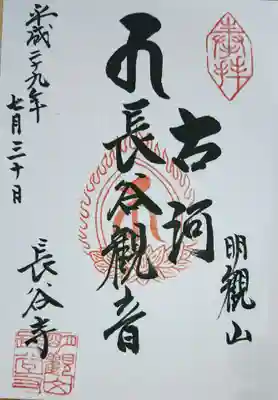 奉拝
明觀山
古河
長谷觀音
平成二九年
七月三十日
長谷寺